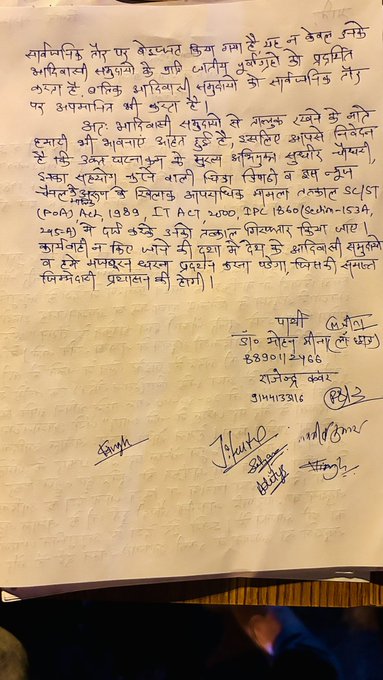 सार्वजनिक तौर पर बेइज्जत किया गया है यह न केवल उनके
आदिवासी समुदायो के प्रति जातीय पूर्वाग्रहो को प्रदर्शित
करता है, बल्कि आदिवासी समुदायो को सार्वजनिक तौर
पर अपमानित भी करता है।
अतः आदिवासी समुदायो से ताल्लुक रखने के नाते
हमारी भी भावनाएं आहत हुई है, इसलिए आपसे निवेदन
है कि उक्त घटनाक्रम के मुख्य अभियुक्त सुधीर चौधरी,
इनका सहयोग करने वाली
चैनल के खिलाफ आपराधिक मामला तत्काल SC/ST
(PoA) Act, 1989, IT ACT 2000, IPC 1860 (Section-153A,
295-A) मे दर्ज करके उन्हे तत्काल गिरफ्तार किया जाए
कार्यवाही न किए जाने की दशा मे देश के आदिवासी समुदायो
व हमे मजबूरन धरना प्रदर्शन करना पडेगा, जिसकी समस्त
जिम्मेदारी प्रशासन की होगी।
प्रार्थी
डॉ० मोहन मीना
8890112466
राजेन्द्र कंवर
9144133216
Singh
Aditya